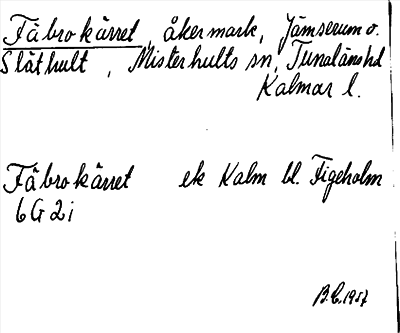 Fäbrokärret, åkermark, Jämserum o.
Släthult, Misterhults sn, Tunaläns hd
Kalmar l.
Fäbrokärret ek Kalm bl. Figeholm
6G2i
B.C. 1957